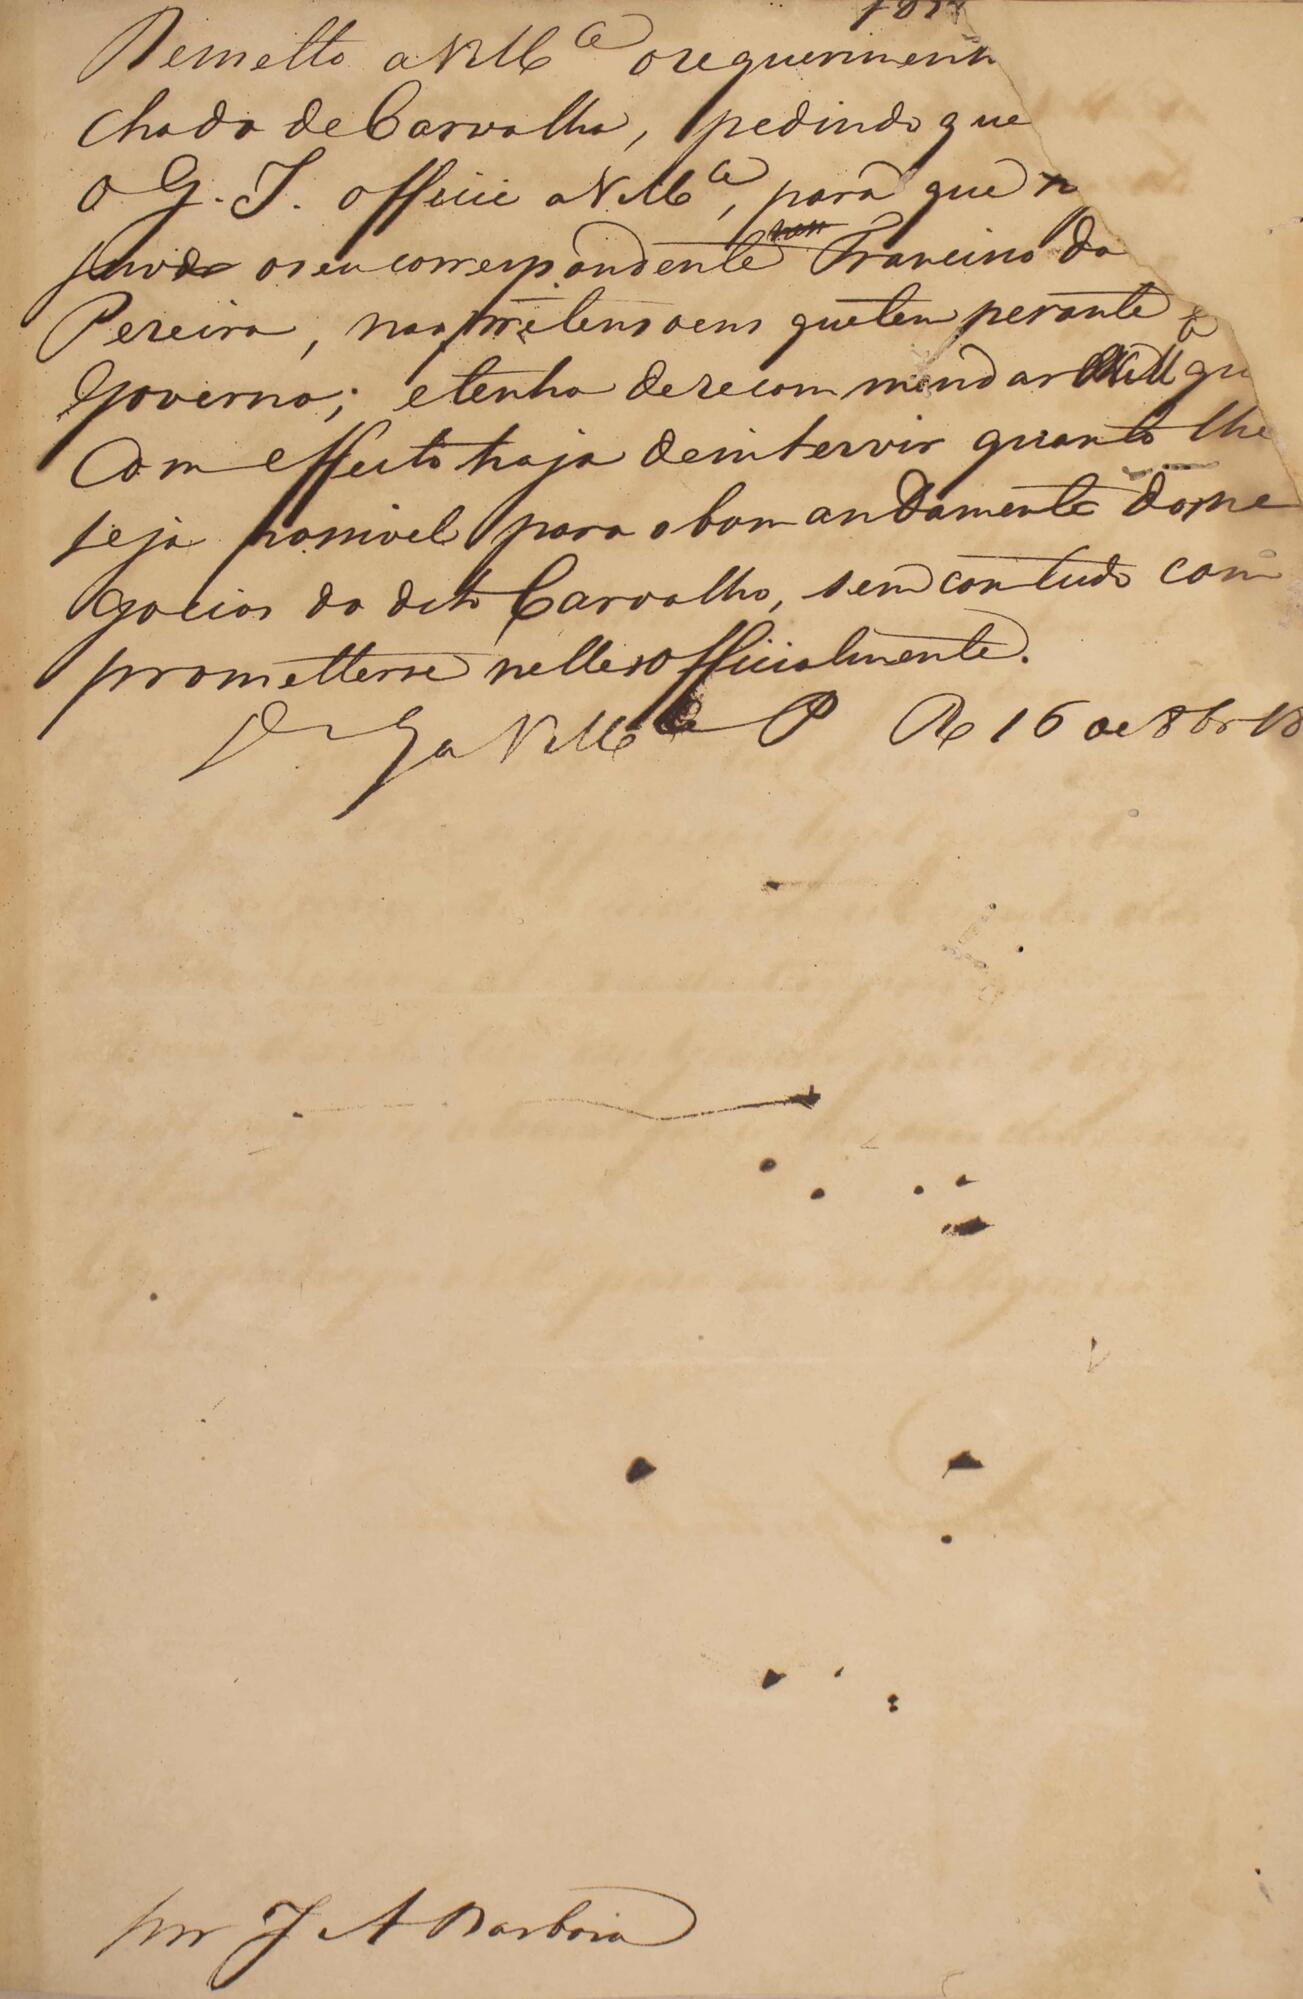 Remetto a V Mce o requeriment
chado de Carvalho, pedindo que
o G. I. officie a V Mce, para que
ajude o seu correspondente Francisco da
Pereira, nas pretensoens que tem perante o
Governo; e tenho de recommendar a V M que
com effeito haja de intervir quanto lhe
seja possivel para o bom andamento dos ne
gocios do dito Carvalho, sem contudo com
prometterse nelles officialmente.
Ds Ga V Mce P R 16 de 8br 18
por J A Barboza